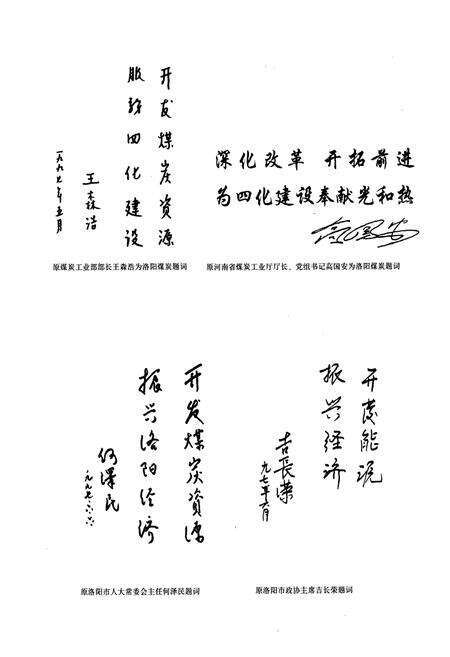 开发煤炭资源
服务四化建设
王森浩
一九九七年五月
原煤炭工业部部长王森浩为洛阳煤炭题词
深化改革 开拓前进
为四化建设奉献光和热
高国安
原河南省煤炭工业厅厅长、党组书记高国安为洛阳煤炭题词
开发煤炭資源
振兴洛阳经济
何泽民
一九九七.六.六
原洛阳市人大常委会主任何泽民题词
开发能源
振兴经济
吉長荣
九七年六月
原洛阳市政协主席吉长荣题词